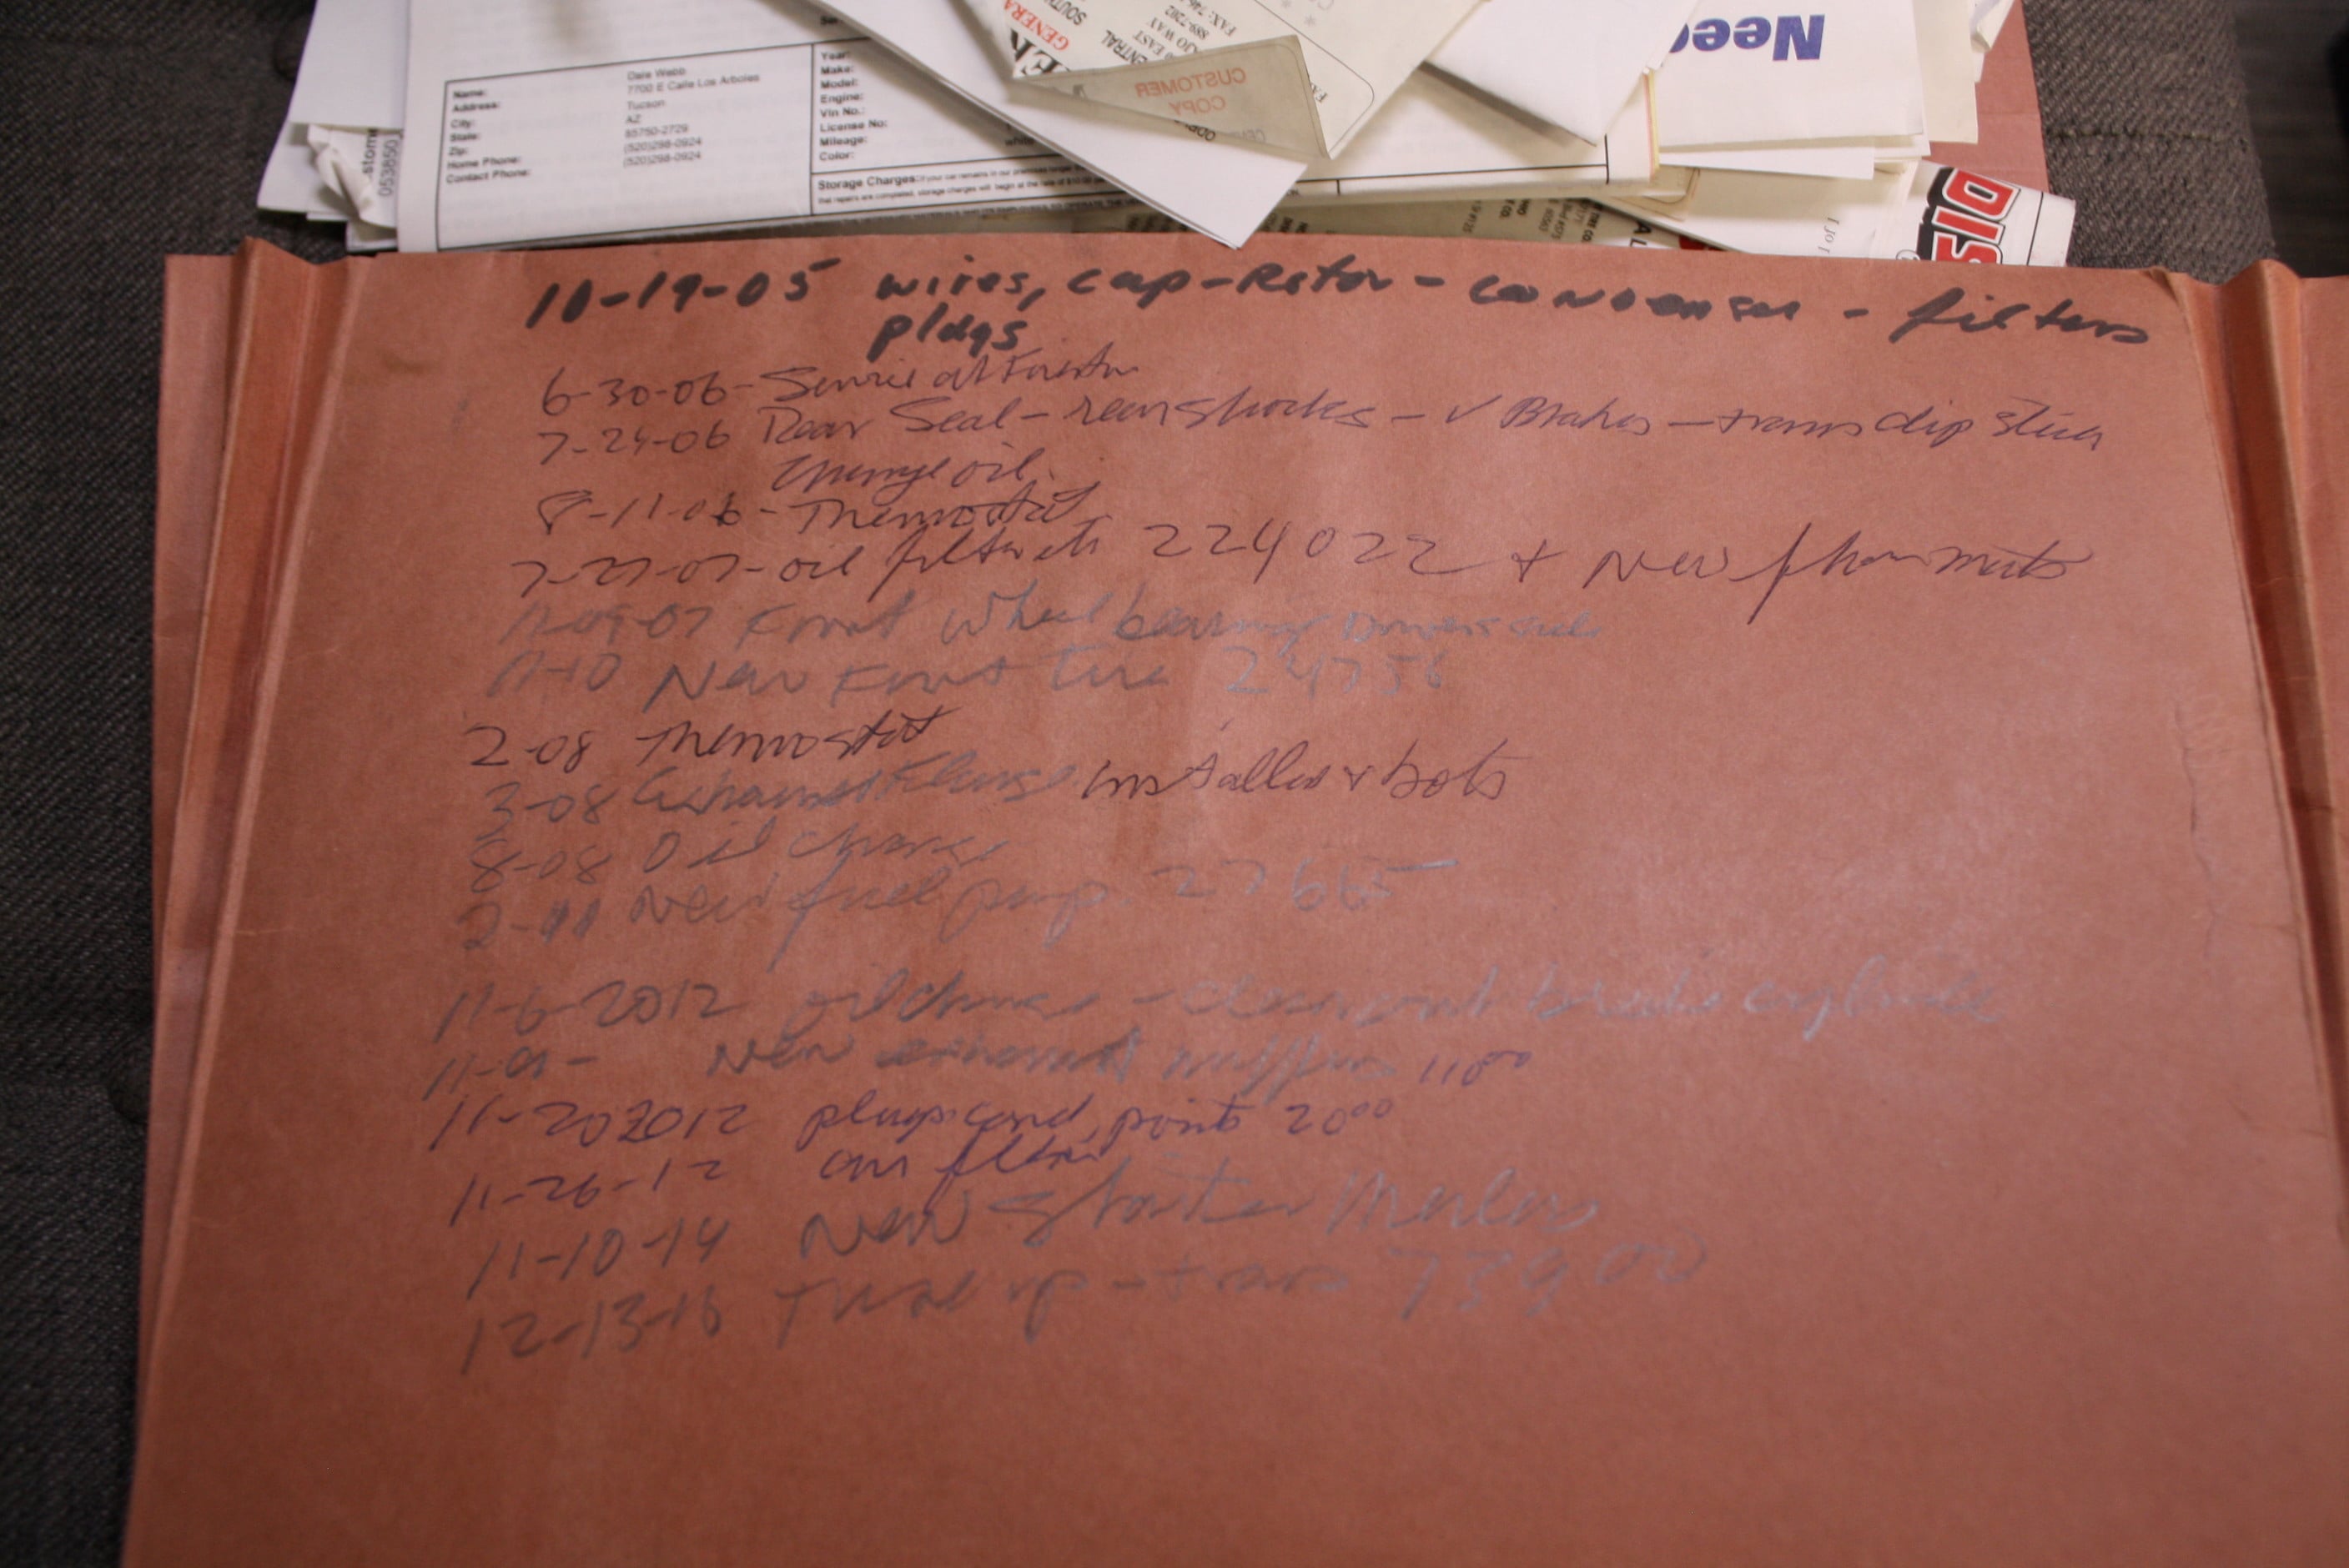 Name: Dale Webb
Address: 7700 E Calle Los Arboles
City: Tucson
State: AZ
Zip: 85750-2729
Home Phone: (520)298-0924
Contact Phone: (520)298-0924
Year:
Make:
Model:
Engine:
Vin No.:
License No:
Mileage:
Color: white
Storage Charges:
CUSTOMER
COPY
GENERA
ENTRAL
EAST
889-7202
FAX: 746-
Need
DIS
053850
10-19-05 wires, cap-Rotor-condenser-filters
plugs
6-30-06-Service at
7-24-06 Rear Seal-rear shocks-✓ Brakes-trans dip stick
Change oil.
8-11-06-Thermostat
7-27-07-oil filter etc 224022 + New
11-09-07 Front wheel bearings Drivers side
11-10 New Front tire 24756
2-08 Thermostat
3-08 Exhaust Flange installed + bolts
8-08 Oil change
New fuel pump. 27665
11-6-2012 oil change - clean out brake cylinder
New exhaust muffler
11-20 2012 plugs cond, points 20⁰⁰
11-26-12 air filter
11-10-14 New Starter Merlins
12-13-16 tune up-trans 739 00